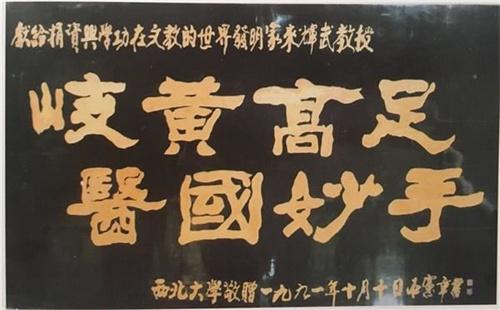 獻給捐資興學功在文教的世界發明家來輝武教授
岐黃高足
醫國妙手
西北大學敬贈一九九一年十月十日 憲章書